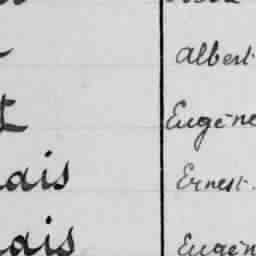 Albert
Eugène
ais Ernest.
ais Eugèn